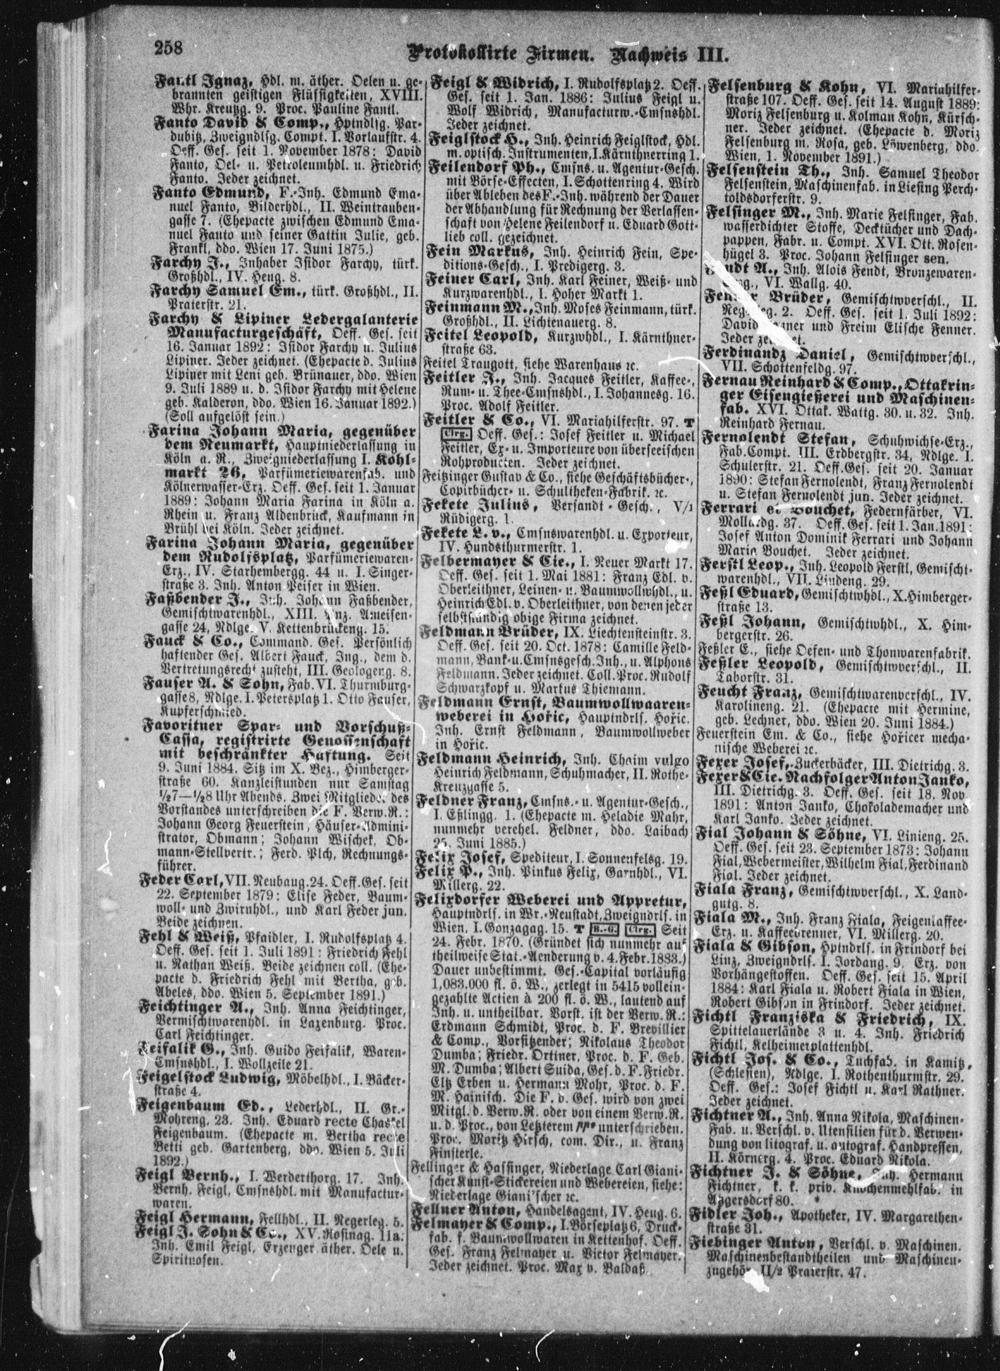 258
Protokollirte Firmen. Nachweis III.
Fantl Ignaz, Hdl. m. äther. Oelen u. ge-
brannten geistigen Flüssigkeiten, XVIII.
Whr. Kreuzg. 9. Proc. Pauline Fantl.
Fanto David & Comp., Hptndlg. Par-
dubitz, Zweigndlsg. Compt. I. Vorlaufstr. 4.
Oeff. Ges. seit 1. November 1878: David
Fanto, Oel- u. Petroleumhdl. u. Friedrich
Fanto. Jeder zeichnet.
Fanto Edmund, F.-Inh. Edmund Ema-
nuel Fanto, Bilderhdl., II. Weintrauben-
gasse 7. (Ehepacte zwischen Edmund Ema-
nuel Fanto und seiner Gattin Julie, geb.
Frankl, ddo. Wien 17. Juni 1875.)
Farchy J., Inhaber Isidor Farchy, türk.
Großhdl., IV. Heug. 8.
Farchy Samuel Em., türk. Großhdl., II.
Praterstr. 21.
Farchy & Lipiner Ledergalanterie
Manufacturgeschäft, Oeff. Ges. seit
16. Januar 1892: Isidor Farchy u. Julius
Lipiner. Jeder zeichnet. (Ehepacte d. Julius
Lipiner mit Leni geb. Brünauer, ddo. Wien
9. Juli 1889 u. d. Isidor Farchy mit Helene
geb. Kalderon, ddo. Wien 16. Januar 1892.)
(Soll aufgelöst sein.)
Farina Johann Maria, gegenüber
dem Neumarkt, Hauptniederlassung in
Köln a. R., Zweigniederlassung I. Kohl-
markt 26, Parfümeriewarenfab. und
Kölnerwasser-Erz. Oeff. Ges. seit 1. Januar
1889: Johann Maria Farina in Köln a.
Rhein u. Franz Aldenbrück, Kaufmann in
Brühl bei Köln. Jeder zeichnet.
Farina Johann Maria, gegenüber
dem Rudolfsplatz, Parfümeriewaren-
Erz., IV. Starhembergg. 44 u. I. Singer-
straße 3. Inh. Anton Peiser in Wien.
Faßbender J., Inh. Johann Faßbender,
Gemischtwarenhdl., XIII. Pnz. Ameisen-
gasse 24, Ndlge. V. Kettenbrückeng. 15.
Fauck & Co., Command. Ges. Persönlich
haftender Ges. Albert Fauck, Ing., dem d.
Vertretungsrecht zusteht, III. Geologeng. 8.
Fauser A. & Sohn, Fab. VI. Thurmburg-
gasse 8, Ndlge. I. Petersplatz 1. Otto Fauser,
Kupferschmied.
Favoritner Spar- und Vorschuß-
Cassa, registrirte Genossenschaft
mit beschränkter Haftung. Seit
9. Juni 1884. Sitz im X. Bez., Himberger-
straße 60. Kanzleistunden nur Samstag
½7—½8 Uhr Abends. Zwei Mitglieder des
Vorstandes unterschreiben die F. Verw.R.:
Johann Georg Feuerstein, Häuser-Admini-
strator, Obmann; Johann Wischek, Ob-
mann-Stellvertr.; Ferd. Plch, Rechnungs-
führer.
Feder Carl, VII. Neubaug. 24. Oeff. Ges. seit
22. September 1879: Elise Feder, Baum-
woll- und Zwirnhdl., und Karl Feder jun.
Beide zeichnen.
Fehl & Weiß, Pfaidler, I. Rudolfsplatz 4.
Oeff. Ges. seit 1. Juli 1891: Friedrich Fehl
u. Nathan Weiß. Beide zeichnen coll. (Ehe-
pacte d. Friedrich Fehl mit Bertha, geb.
Abeles, ddo. Wien 5. September 1891.)
Feichtinger A., Inh. Anna Feichtinger,
Vermischtwarenhdl. in Laxenburg. Proc.
Carl Feichtinger.
Feifalik G., Inh. Guido Feifalik, Waren-
Cmsnshdl., I. Wollzeile 21.
Feigelstock Ludwig, Möbelhdl., I. Bäcker-
straße 4.
Feigenbaum Ed., Lederhdl., II. Gr.-
Mohreng. 23. Inh. Eduard recte Chaskel
Feigenbaum. (Ehepacte m. Bertha recte
Betti geb. Gartenberg, ddo. Wien 5. Juli
1892.)
Feigl Bernh., I. Werderthorg. 17. Inh.
Bernh. Feigl, Cmsnshdl. mit Manufactur-
waren.
Feigl Hermann, Fellhdl., II. Negerleg. 5.
Feigl J. Sohn & Co., XV. Rosinag. 11a:
Inh. Emil Feigl, Erzenger äther. Oele u.
Spirituosen.
Feigl & Widrich, I. Rudolfsplatz 2. Oeff.
Ges. seit 1. Jan. 1886: Julius Feigl u.
Wolf Widrich, Manufacturw.-Cmsnshdl.
Jeder zeichnet.
Feiglstock H., Inh. Heinrich Feiglstock, Hdl.
m. optisch. Instrumenten, I. Kärnthnerring 1.
Feilendorf Ph., Cmsns. u. Agentur-Gesch.
mit Börse-Effecten, I. Schottenring 4. Wird
über Ableben des F.-Inh. während der Dauer
der Abhandlung für Rechnung der Verlassen-
schaft von Helene Feilendorf u. Eduard Gott-
lieb coll. gezeichnet.
Fein Markus, Inh. Heinrich Fein, Spe-
ditions-Gesch., I. Predigerg. 3.
Feiner Carl, Inh. Karl Feiner, Weiß- und
Kurzwarenhdl., I. Hoher Markt 1.
Feinmann M., Inh. Moses Feinmann, türk.
Großhdl., II. Lichtenauerg. 8.
Feitel Leopold, Kurzwhdl., I. Kärnthner-
straße 63.
Feitel Traugott, siehe Warenhaus ꝛc.
Feitler J., Inh. Jacques Feitler, Kaffee-,
Rum- u. Thee-Cmsnshdl., I. Johannesg. 16.
Proc. Adolf Feitler.
Feitler & Co., VI. Mariahilferstr. 97. T
Clrg. Oeff. Ges.: Josef Feitler u. Michael
Feitler, Ex- u. Importeure von überseeischen
Rohproducten. Jeder zeichnet.
Feitzinger Gustav & Co., siehe Geschäftsbücher-,
Copirbücher- u. Schultheken-Fabrik. ꝛc.
Fekete Julius, Versandt-Gesch., V/1
Rüdigerg. 1.
Fekete L. v., Cmsnswarenhdl. u. Exporteur,
IV. Hundsthurmerstr. 1.
Felbermayer & Cie., I. Neuer Markt 17.
Oeff. Ges. seit 1. Mai 1881: Franz Edl. v.
Oberleithner, Leinen- u. Baumwollwhdl., u.
Heinrich Edl. v. Oberleithner, von denen jeder
selbstständig obige Firma zeichnet.
Feldmann Brüder, IX. Liechtensteinstr. 3.
Oeff. Ges. seit 20. Oct. 1878: Camille Feld-
mann, Bank- u. Cmsnsgesch.Inh., u. Alphons
Feldmann. Jeder zeichnet. Coll.Proc. Rudolf
Schwarzkopf u. Martus Thiemann.
Feldmann Ernst, Baumwollwaaren-
weberei in Hořic, Hauptndrls. Hořic.
Inh. Ernst Feldmann, Baumwollweber
in Hořic.
Feldmann Heinrich, Inh. Chaim vulgo
Heinrich Feldmann, Schuhmacher, II. Rothe-
Kreuzgasse 5.
Feldner Franz, Cmsns.- u. Agentur-Gesch.,
I. Eßlingg. 1. (Ehepacte m. Heladie Mahr,
nunmehr verehel. Feldner, ddo. Laibach
25. Juni 1885.)
Felix Josef, Spediteur, I. Sonnenfelsg. 19.
Felix P., Inh. Pinkus Felix, Garnhdl., VI.
Millerg. 22.
Felixdorfer Weberei und Appretur,
Hauptndrls. in Wr.-Neustadt, Zweigndrls. in
Wien, I. Gonzagag. 15. T R.-G. Clrg. Seit
24. Febr. 1870. (Gründet sich nunmehr auf
theilweise Stat.-Aenderung v. 4. Febr. 1883.)
Dauer unbestimmt. Ges.-Capital vorläufig
1,083.000 fl. ö. W., zerlegt in 5415 vollein-
gezahlte Actien à 200 fl. ö. W., lautend auf
Inh. u. untheilbar. Vorst. ist der Verw. R.:
Erdmann Schmidt, Proc. d. F. Brevillier
& Comp., Vorsitzender; Nikolaus Theodor
Dumba; Friedr. Ortiner, Proc. d. F. Geb.
M. Dumba; Albert Suida, Ges. d. F. Friedr.
Eltz Erben u. Hermann Mohr, Proc. d. F.
M. Hainisch. Die F. d. Ges. wird von zwei
Mitgl. d. Verw.R. oder von einem Verw.R.
u. d. Proc., von Letzterem ppa unterschrieben.
Proc. Moritz Hirsch, com. Dir., u. Franz
Finsterle.
Fellinger & Hassinger, Niederlage Carl Giani-
scher Kunst-Stickereien und Webereien, siehe:
Niederlage Giani'scher ꝛc.
Fellner Anton, Handelsagent, IV. Heug. 6.
Felmayer & Comp., I. Börseplatz 6, Druck-
fab. f. Baumwollwaren in Kettenhof. Oeff.
Ges. Franz Felmayer u. Victor Felmayer.
Jeder zeichnet. Proc. Max v. Baldaß.
Felsenburg & Kohn, VI. Mariahilfer-
straße 107. Oeff. Ges. seit 14. August 1889:
Moriz Felsenburg u. Kolman Kohn, Kürsch-
ner. Jeder zeichnet. (Ehepacte d. Moriz
Felsenburg m. Rosa, geb. Löwenberg, ddo.
Wien, 1. November 1891.)
Felsenstein Th., Inh. Samuel Theodor
Felsenstein, Maschinenfab. in Liesing Perch-
toldsdorferstr. 9.
Felsinger M., Inh. Marie Felsinger, Fab.
wasserdichter Stoffe, Decktücher und Dach-
pappen, Fabr. u. Compt. XVI. Ott. Rosen-
hügel 3. Proc. Johann Felsinger sen.
Fendt A., Inh. Alois Fendt, Bronzewaren-
VI. Wallg. 40.
Brüder, Gemischtwverschl., II.
2. Oeff. Ges. seit 1. Juli 1892:
David und Freim Elische Fenner.
Jeder
Ferdinandz Daniel, Gemischtwverschl.,
VII. Schottenfeldg. 97.
Fernau Reinhard & Comp., Ottakrin-
ger Eisengießerei und Maschinen-
fab. XVI. Ottak. Wattg. 30. u. 32. Inh.
Reinhard Fernau.
Fernolendt Stefan, Schuhwichse-Erz.,
Fab.Compt. III. Erdbergstr. 34, Ndlge. I.
Schulerstr. 21. Oeff.Ges. seit 20. Januar
1890: Stefan Fernolendt, Franz Fernolendt
u. Stefan Fernolendt jun. Jeder zeichnet.
Ferrari & Bouchet, Federnfärber, VI.
Mollardg. 37. Oeff. Ges. seit 1. Jan. 1891:
Josef Anton Dominik Ferrari und Johann
Marie Bouchet. Jeder zeichnet.
Ferstl Leop., Inh. Leopold Ferstl, Gemischt-
warenhdl., VII. Lindeng. 29.
Feßl Eduard, Gemischtwhdl., X. Himberger-
straße 13.
Feßl Johann, Gemischtwhdl., X. Him-
bergerstr. 26.
Feßler E., siehe Oefen- und Thonwarenfabrik.
Feßler Leopold, Gemischtwverschl., II.
Taborstr. 31.
Feucht Franz, Gemischtwarenverschl., IV.
Karolineng. 21. (Ehepacte mit Hermine,
geb. Lechner, ddo. Wien 20. Juni 1884.)
Feuerstein Em. & Co., siehe Hořicer mecha-
nische Weberei ꝛc.
Fexer Josef, Zuckerbäcker, III. Dietrichg. 3.
Fexer & Cie. Nachfolger Anton Janko,
III. Dietrichg. 3. Oeff. Ges. seit 18. Nov
1891: Anton Janko, Chokolademacher und
Karl Janko. Jeder zeichnet.
Fial Johann & Söhne, VI. Linieng. 25.
Oeff. Ges. seit 23. September 1873: Johann
Fial, Webermeister, Wilhelm Fial, Ferdinand
Fial. Jeder zeichnet.
Fiala Franz, Gemischtwverschl., X. Land-
gutg. 8.
Fiala M., Inh. Franz Fiala, Feigenkaffee-
Erz. u. Kaffeebrenner, VI. Millerg. 20.
Fiala & Gibson, Hptndrls. in Frindorf bei
Linz, Zweigndrls. I. Jordang. 9. Erz. von
Vorhängestoffen. Oeff. Ges. seit 15. April
1884: Karl Fiala u. Robert Fiala in Wien,
Robert Gibson in Frindorf. Jeder zeichnet.
Fichtl Franziska & Friedrich, IX.
Spittelauerlände 3 u. 4. Inh. Friedrich
Fichtl, Kelheimerplattenhdl.
Fichtl Jos. & Co., Tuchfab. in Kamitz,
(Schlesien), Ndlge. I. Rothenthurmstr. 29.
Oeff. Ges.: Josef Fichtl u. Karl Rathner.
Jeder zeichnet.
Fichtner A., Inh. Anna Nikola, Maschinen-
Fab. u. Verschl. v. Utensilien für d. Verwen-
dung von litograf. u. autograf. Handpressen,
II. Körnerg. 4. Proc. Eduard Nikola.
Fichtner J. & Söhne, Inh. Hermann
Fichtner, k. k. priv. Knochenmehlfab. in
Atzgersdorf 80.
Fidler Joh., Apotheker, IV. Margarethen-
straße 31.
Fiebinger Anton, Verschl. v. Maschinen.
Maschinenbestandtheilen und Maschinen-
zugehör, II/2 Praterstr. 47.